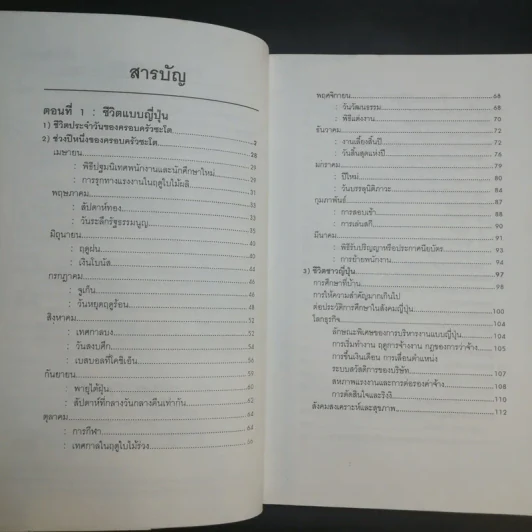 สารบัญ
ตอนที่ 1 : ชีวิตแบบญี่ปุ่น
1) ชีวิตประจำวันของครอบครัวซะโต 3
2) ช่วงปีหนึ่งของครอบครัวซะโต 28
เมษายน 29
: พิธีปฐมนิเทศพนักงานและนักศึกษาใหม่ 29
: การรุกทางแรงงานในฤดูใบไม้ผลิ 31
พฤษภาคม
: สัปดาห์ทอง
: วันระลึกรัฐธรรมนูญ
มิถุนายน
: ฤดูฝน
: เงินโบนัส 44
กรกฎาคม 46
: จูเก็น
: วันหยุดฤดูร้อน
สิงหาคม 52
: เทศกาลบง 52
: วันสงบศึก 54
: เบสบอลที่โคชิเอ็น 56
กันยายน 59
: พายุไต้ฝุ่น 60
: สัปดาห์ที่กลางวันกลางคืนเท่ากัน 62
ตุลาคม 64
: การกีฬา 64
: เทศกาลในฤดูใบไม้ร่วง
พฤศจิกายน 68
: วันวัฒนธรรม 68
: พิธีแต่งงาน 70
ธันวาคม 72
: งานเลี้ยงสิ้นปี 72
: วันสิ้นสุดแห่งปี 76
มกราคม 79
: ปีใหม่ 80
: วันบรรลุนิติภาวะ 84
กุมภาพันธ์ 87
: การสอบเข้า 88
: การเล่นสกี 90
มีนาคม 91
: พิธีรับปริญญาหรือประกาศนียบัตร 93
: การย้ายพนักงาน 94
3) ชีวิตชาวญี่ปุ่น 97
การศึกษาที่บ้าน 98
การให้ความสำคัญมากเกินไป
ต่อประวัติการศึกษาในสังคมญี่ปุ่น 100
โลกธุรกิจ 104
ลักษณะพิเศษของการบริหารงานแบบญี่ปุ่น 104
การเริ่มทำงาน ฤดูการจ้างงาน กฎของการว่าจ้าง 105
การขึ้นเงินเดือน การเลื่อนตำแหน่ง
ระบบสวัสดิการของบริษัท 107
สหภาพแรงงานและการต่อรองค่าจ้าง 108
การตัดสินใจและริงงิ 110
สังคมสงเคราะห์และสุขภาพ 112